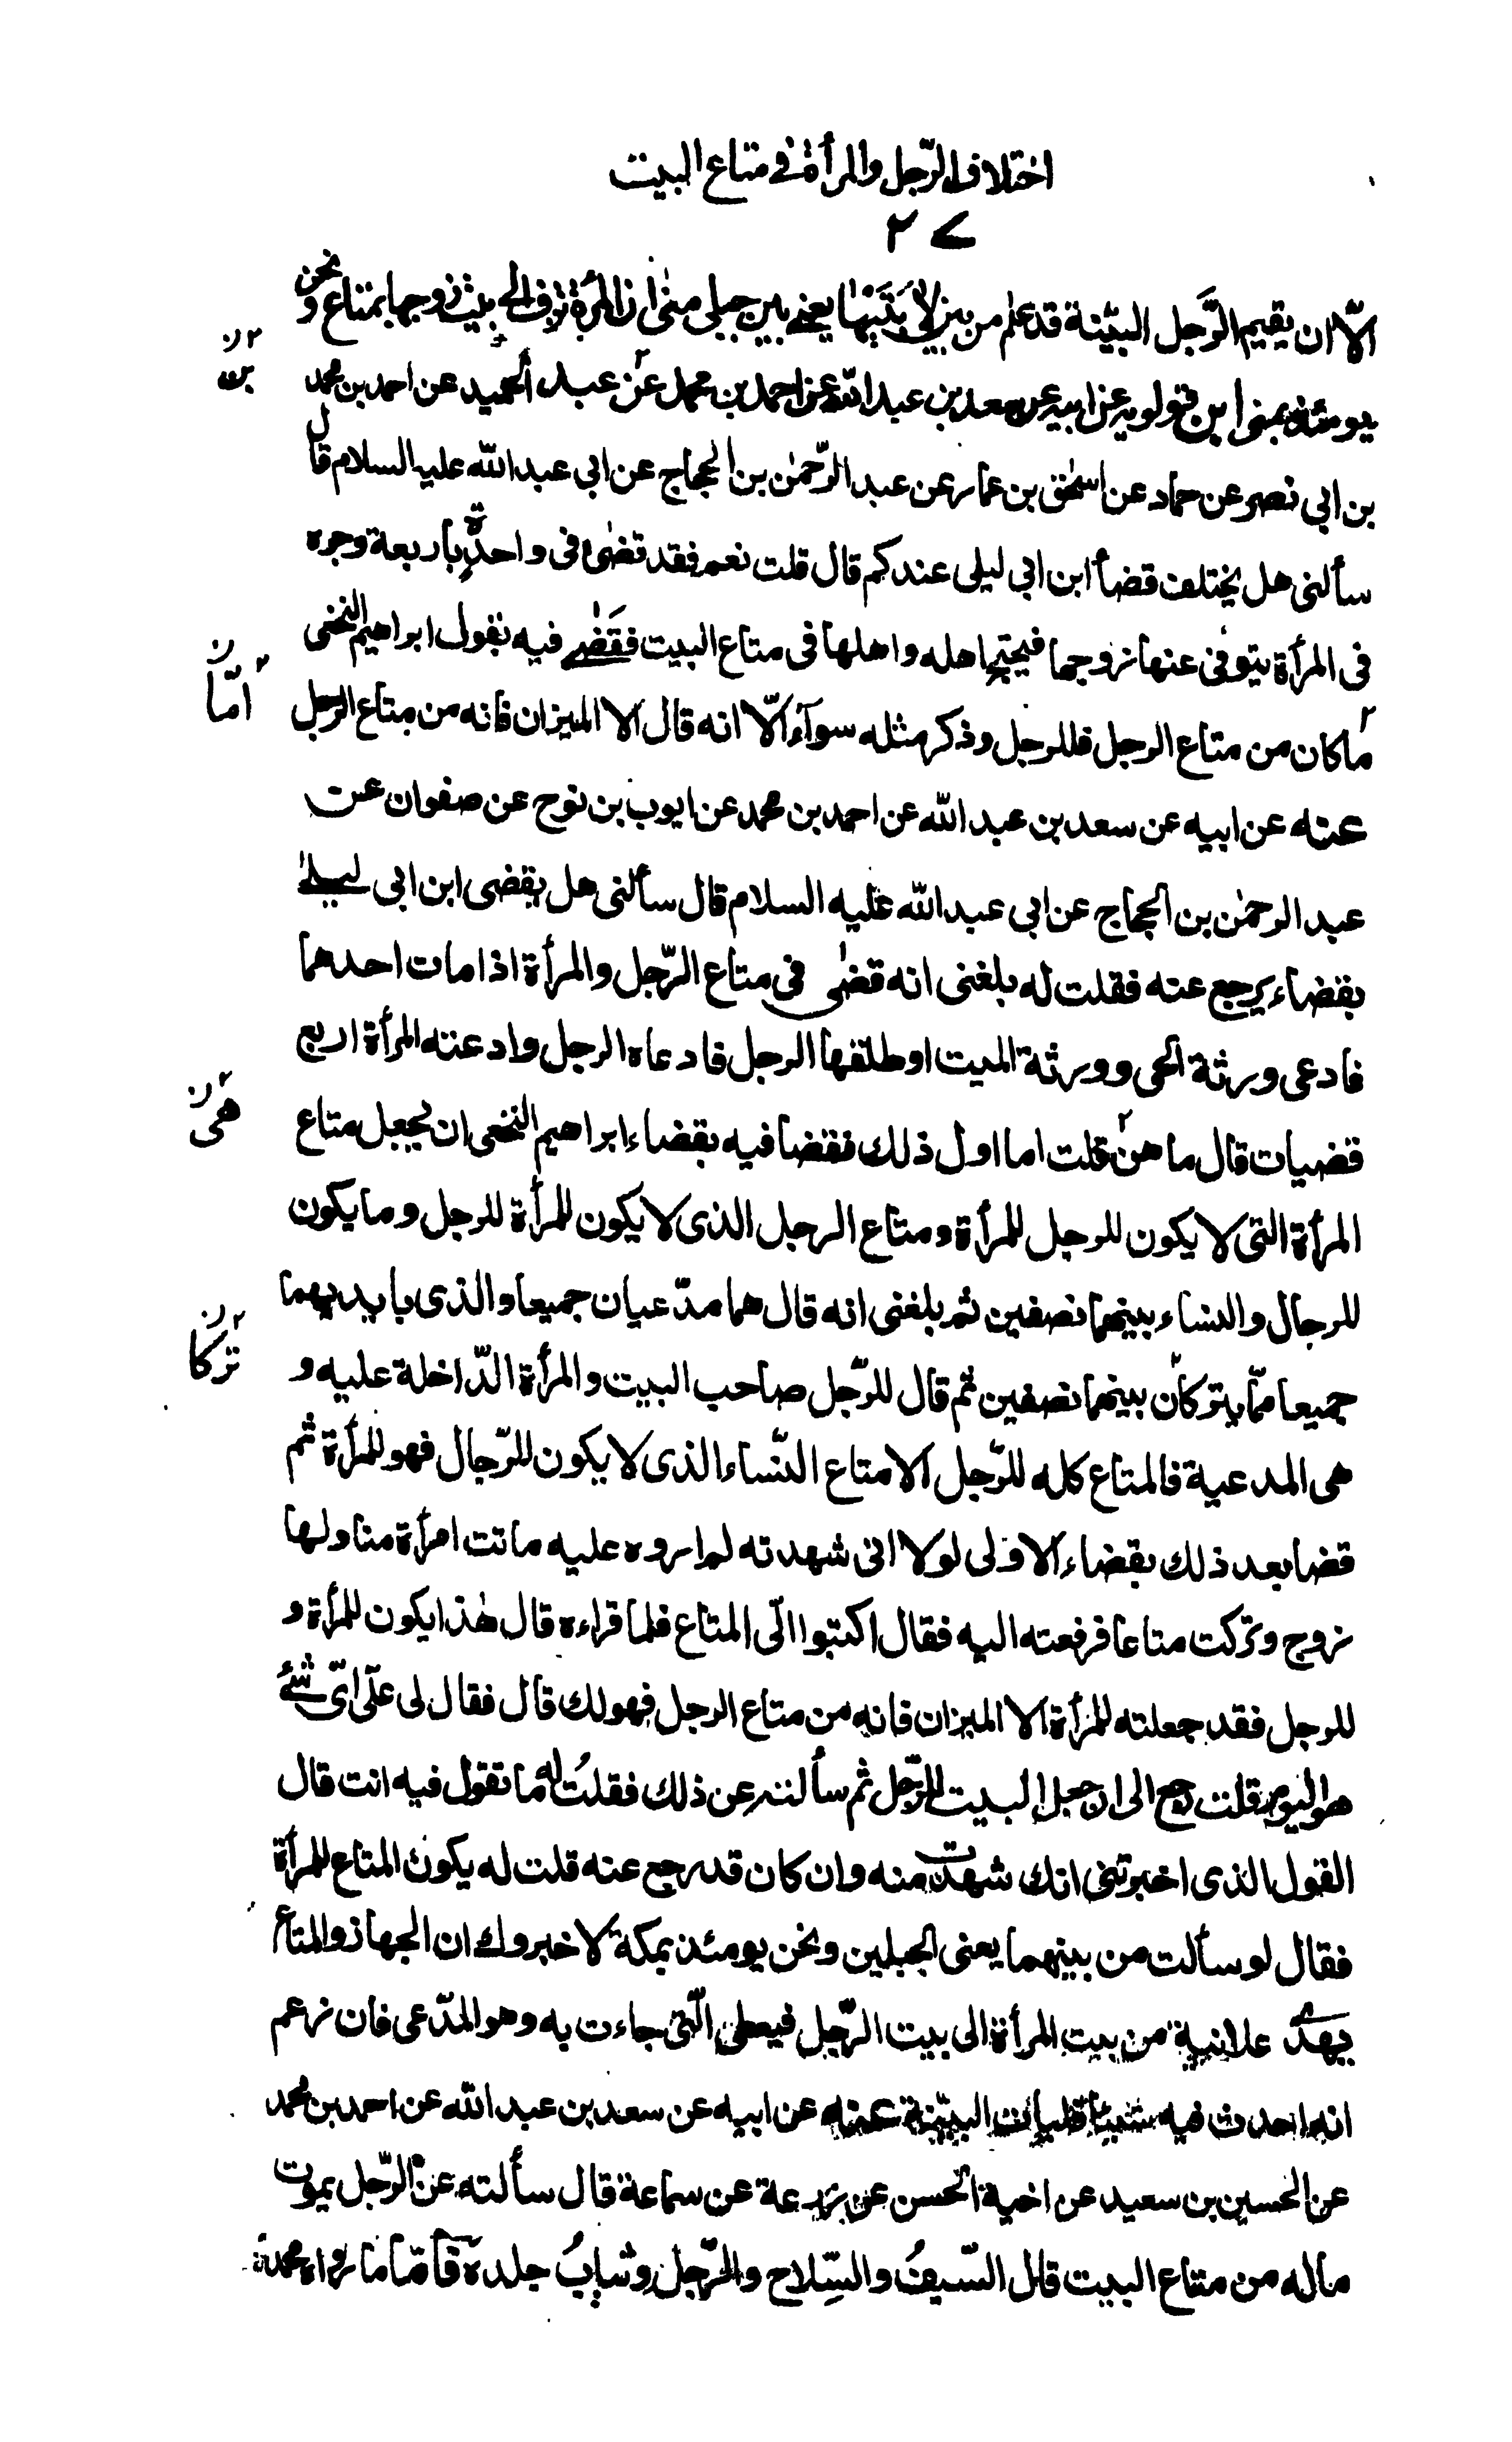 اختلاف الرّجل والمرأة في متاع البيت
٢٧
الّا ان يقيم الرَّجل البيّنة قد علم من بين لابَتَيْهٰا يعني بين جبلي منٰى ان المرأة تزف الى بيت زوجها بمتاع ونحن
يومئذ بمنى ابن قولويه عن ابيه عن سعد بن عبد اللّه عن احمد بن محمد عن عبد الحميد عن احمد بن محمد
بن ابي نصر عن حماد عن اسحٰق بن عمار عن عبد الرّحمٰن بن الحجاج عن ابي عبد اللّه عليه السلام قال
سألني هل يختلف قضأ ابن ابي ليلى عندكم قال قلت نعم فقد قضىٰ في واحدةٍ باربعة وجوه
في المرأة يتوفى عنها زوجها فيجئ اهله واهلها في متاع البيت فقَضٰى فيه بقول ابراهيم النخعى
ما كان من متاع الرجل فللرجل وذكر مثله سوآء الّا انه قال الا الميزان فانه من متاع الرجل
عنه عن ابيه عن سعد بن عبد اللّه عن احمد بن محمد عن ايوب بن نوح عن صفوان عن
عبد الرحمٰن بن الحجاج عن ابي عبد اللّه عليه السلام قال سألنى هل يقضى ابن ابي ليلىٰ
بقضاء يرجع عنه فقلت له بلغنى انه قضٰى في متاع الرّجل والمرأة اذا مات احدهما
فادعى ورثة الحى وورثة الميت او طلقها الرجل فادعاه الرجل وادعته المرأة اربع
قضيات قال ما هنّ قلت اما اول ذلك فقضا فيه بقضاء ابراهيم النخعى ان يجعل متاع
المرأة التى لا يكون للرجل للمرأة ومتاع الرجل الذى لا يكون للمرأة للرجل وما يكون
للرجال والنساء بينهما نصفين ثم بلغنى انه قال هما مدّعيان جميعا والذى بايديهما
جميعا ممّا يتركان بينهما نصفين ثم قال للرّجل صاحب البيت والمرأة الدّاخلة عليه و
هى المدعية فالمتاع كله للرّجل الا متاع النّساء الذى لا يكون للرّجال فهو للمرأة ثم
قضا بعد ذلك بقضاء الاولى لولا انى شهدته لم اروه عليه ماتت امرأة منا ولها
زوج وتركت متاعا فرفعته اليه فقال اكتبوا الّى المتاع فلما قراءه قال هٰذا يكون للمرأة و
للرجل فقد جعلته للمرأة الا الميزان فانه من متاع الرجل فهو لك قال فقال لى على اىّ شئ
هو اليوم قلت رجع الى ان جعل البيت للرّجل ثم سألته عن ذلك فقلتُ له ما تقول فيه انت قال
القول الذى اخبرتنى انك شهدت منه وان كان قد رجع عنه قلت له يكون المتاع للمرأة
فقال لو سألت من بينهما يعنى الجبلين ونحن يومئذ بمكة لاخبروك ان الجهاز والمتاع
يهدٰى علانية من بيت المرأة الى بيت الرّجل فيعطى الّتى جاءت به وهو المدّعى فان زعم
انه احدث فيه شيئا فليات البيّنة عنه عن ابيه عن سعد بن عبد اللّه عن احمد بن محمد
عن الحسين بن سعيد عن اخيه الحسن عن زرعة عن سماعة قال سألته عن الرّجل يموت
ماله من متاع البيت قال السّيفُ والسّلاح والرّحل وثيابُ جلده فامّا ما رواه محمد
بن
امّا
هى
تركا